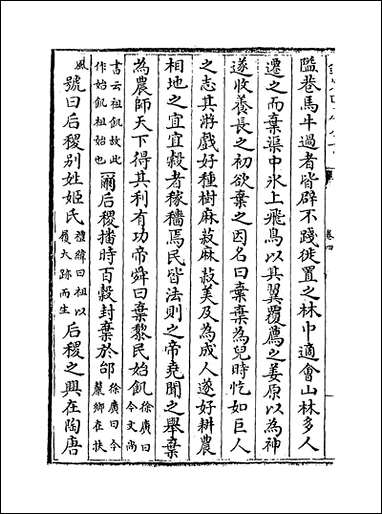 隘巷馬牛過者皆辟不踐徙置之林中適會山林多人
遷之而棄渠中氷上飛鳥以其翼覆薦之姜原以為神
遂收養長之初欲棄之因名曰棄棄為兒時忔如巨人
之志其游戲好種樹麻菽麻菽美及為成人遂好耕農
相地之宜宜榖者稼穡焉民皆法則之帝堯聞之舉棄
為農師天下得其利有功帝舜曰棄黎民始飢徐廣曰今文尚
書云祖飢故此作始飢祖始也爾后稷播時百榖封棄於邰徐廣曰今斄鄉在扶
風號曰后稷别姓姬氏禮緯曰祖以履大跡而生后稷之興在陶唐
卷四